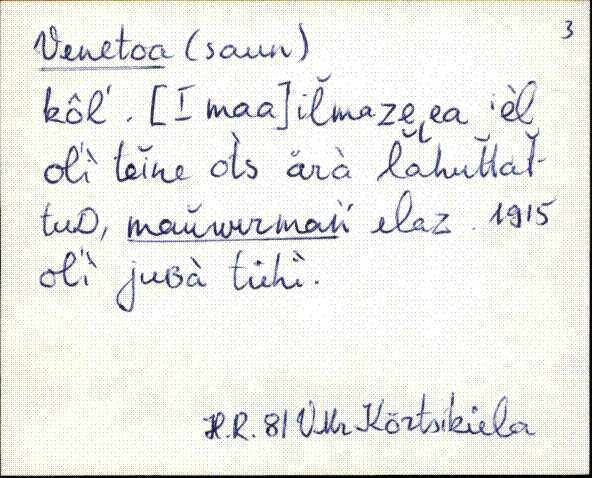 3
Venetoa (saun)
kôl'. [I maa]ilmaze̮ ea ièl
olì teine ot̀s ärà lăhuttat̆-
tuD, mau̮wvrmaǹ elaz. 1915
olì juBà tühì.
H.R. 81 VMr Körtsikiela